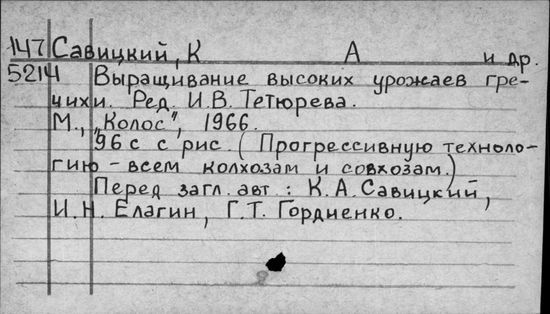 147 Савицкий, К А и др.
5214 Выращивание высоких урожаев гре-
чихи. Ред. И.В. Тетюрева.
М., „Колос", 1966.
96 с с рис. (Прогрессивную техноло-
гию – всем колхозам и совхозам.)
Перед загл. авт: К.А. Савицкий,
И.Н. Елагин, Г.Т. Гордиенко.